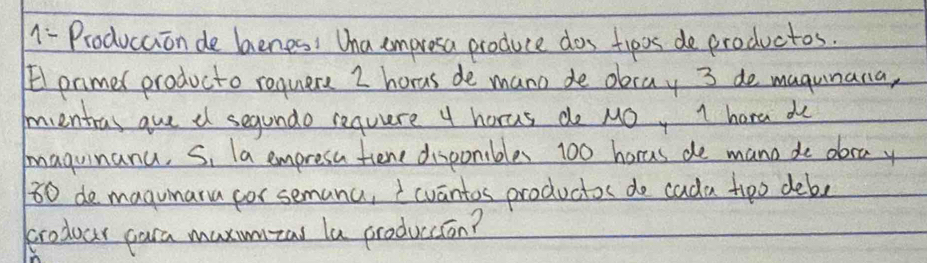 1- Producción de bienes: Una empresa produce dos tipos de productos.
El primer producto requiere 2 horas de mano de obra y 3 de maquinaria,
mientras que el segundo requiere 4 horas de MO y 1 hora de
maquinaria. Si la empresa tiene disponibles 100 horas de mano de obra y
80 de maquinaria por semana, ¿cuántos productos de cada tipo debe
producir para maximizar la producción?